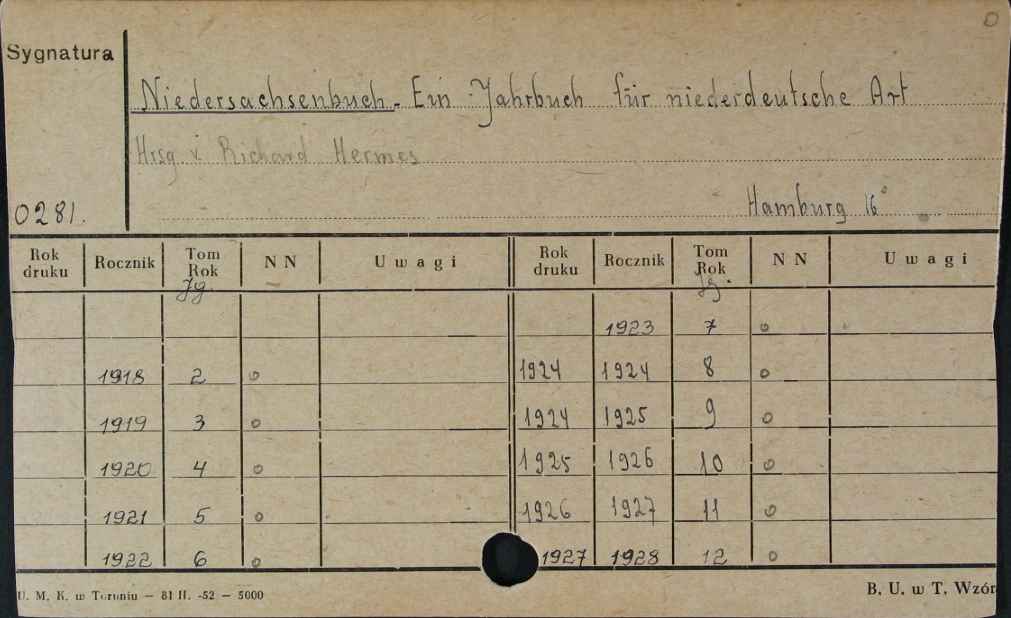 O
Sygnatura
Niedersachsenbuch. Ein Jahrbuch für niederdeutsche Art
Hrsg v. Richard Hermes
0281.
Hamburg 16°
Rok druku Rocznik Tom Rok NN Uwagi Rok druku Rocznik Tom Rok NN Uwagi
Jg. Jg.
1923 7 o
1918 2 o 1924 1924 8 o
1919 3 o 1924 1925 9 o
1920 4 o 1925 1926 10 o
1921 5 o 1926 1927 11 o
1922 6 o 1927 1928 12 o
U. M. K. w Toruniu — 81 II. -52 — 5000
B. U. w T. Wzór